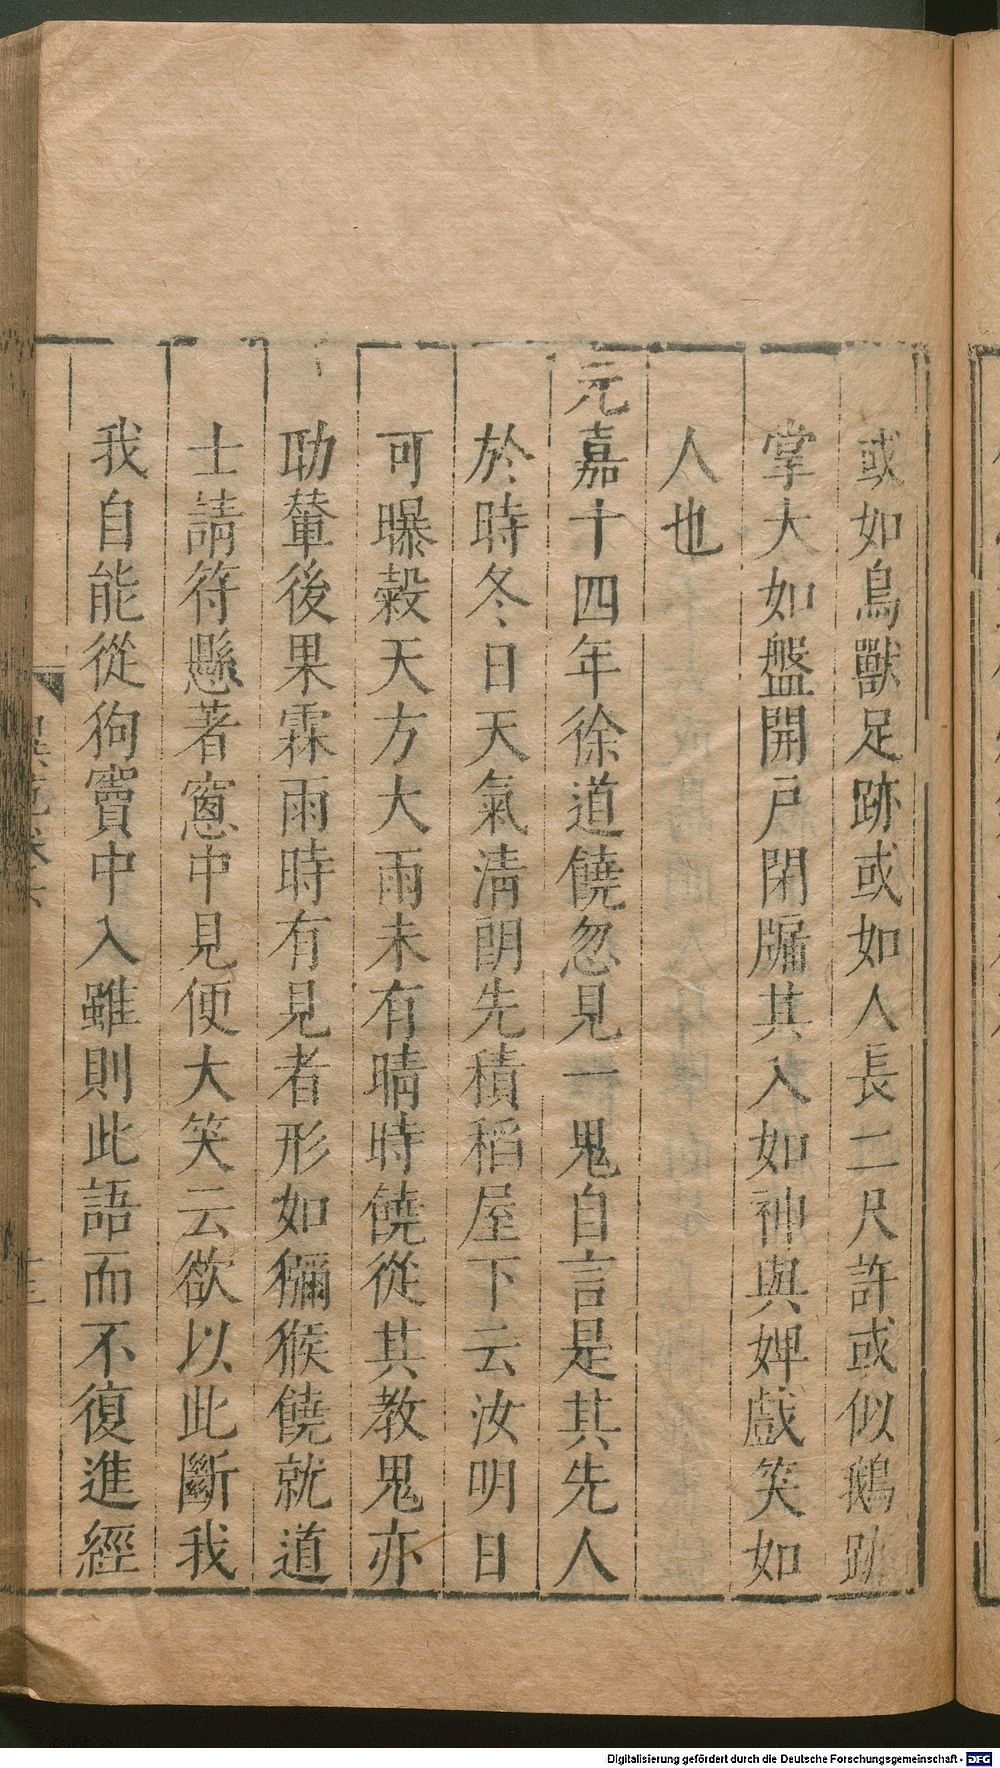 或如鳥獸足跡或如人長二尺許或似鵝跡
掌大如盤開戸閉牖其入如神與婢戲笑如
人也
元嘉十四年徐道饒忽見一鬼自言是其先人
於時冬日天氣清朗先積稻屋下云汝明日
可曝穀天方大雨未有晴時饒從其教鬼亦
助輦後果霖雨時有見者形如獼猴饒就道
士請符懸著窻中見便大笑云欲以此斷我
我自能從狗竇中入雖則此語而不復進經
Digitalisierung gefördert durch die Deutsche Forschungsgemeinschaft - DFG